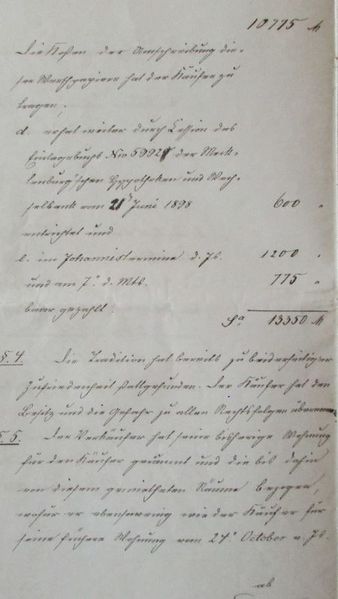 10775 M
Die Kosten der Umschreibung die-
ser Werthpapiere hat der Käufer zu
tragen;
d. sofort weiter durch Cession des
Einlagebuchs No 5992 der Meck-
lenburg'schen Hypotheken und Wech-
selbank vom 21t Juni 1898 600 "
entrichtet und
e. im Johannistermine d. Js. 1200 "
und am 7t d. Mts. 775 "
baar gezahlt.
Sa 13350 M
§. 4. Die Tradition hat bereits zu beiderseitiger
Zufriedenheit stattgefunden. Der Käufer hat den
Besitz und die Gefahr zu allen Rechtsfolgen übernommen
§. 5. Der Verkäufer hat seine bisherige Wohnung
für den Käufer geräumt und die bis dahin
von diesem gemietheten Räume bezogen
wofür er ebensowenig wie der Käufer für
seine frühere Wohnung vom 24t October v. Js.
ab